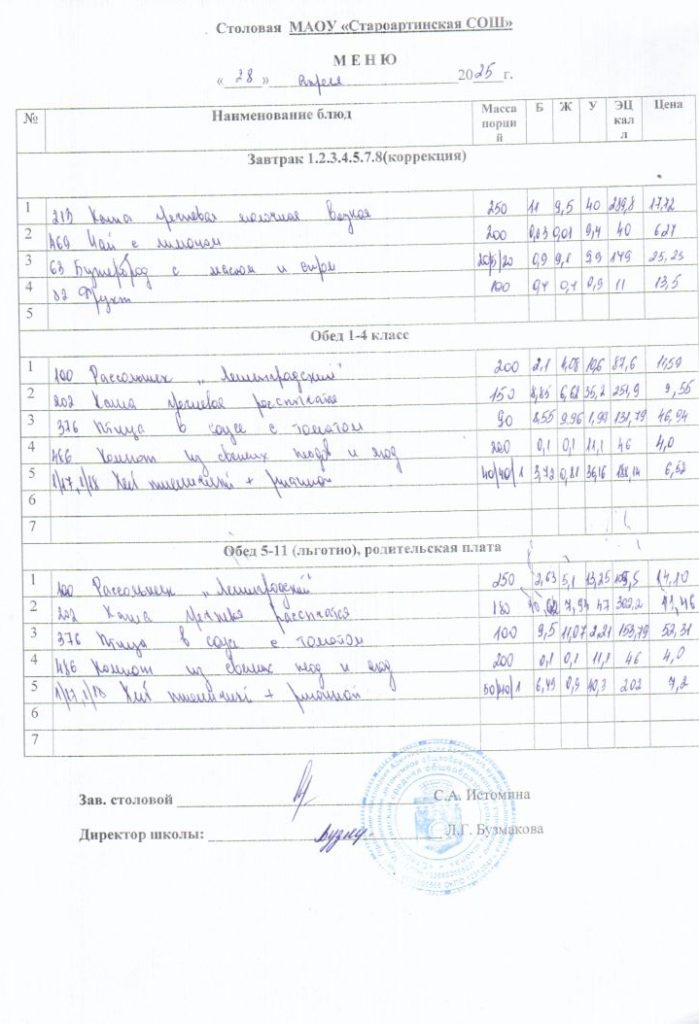 Столовая МАОУ «Староартинская СОШ»
М Е Н Ю
« 28 » апреля 2025 г.
№ Наименование блюд Масса порций Б Ж У ЭЦ кал л Цена
Завтрак 1.2.3.4.5.7.8(коррекция)
1 213 Каша гречневая молочная вязкая 250 11 9,5 40 289,8 17,72
2 469 Чай с лимоном 200 0,03 0,01 9,4 40
3 63 Бутерброд с маслом и сыром 0,9 179 25,25
4 82 Фрукт 100 11 13,5
5
Обед 1-4 класс
1 100 Рассольник „Ленинградский" 200 2,1 4,08 10,6 87,6 11,59
2 202 Каша гречневая рассыпчатая 150 8,85 6,62 35,2 251,9 9,55
3 376 Птица в соусе с томатом 90 8,55 9,96 1,99 131,79 46,94
4 486 Компот из свежих плодов и ягод 200 0,1 0,1 11,1 46 4,0
5 Хлеб пшеничный + ржаной 40/40/1 3,72 0,81 36,16 6,52
6
7
Обед 5-11 (льготно), родительская плата
1 100 Рассольник „Ленинградский" 250 2,63 5,1 13,25 14,10
2 202 Каша гречнева рассыпчатая 180 7,94 47 302,2 11,46
3 376 Птица в соусе с томатом 100 9,5 11,07 2,21 153,79 52,31
4 486 Компот из свежих плод и ягод 200 0,1 0,1 11,1 46 4,0
5 Хлеб пшеничный + ржаной 50/40/1 6,49 0,9 40,3 202 7,2
6
7
Зав. столовой С.А. Истомина
Директор школы: Л.Г. Бузмакова